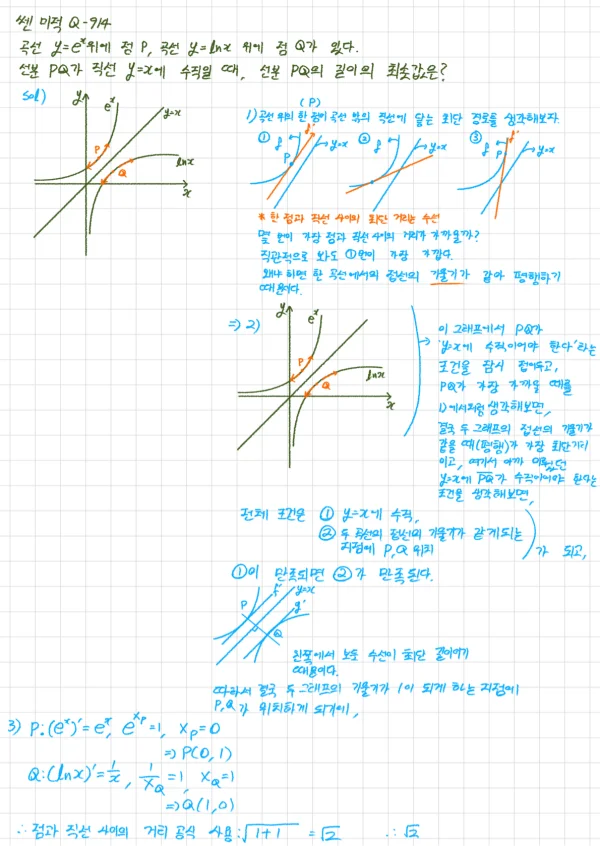 쎈 미적 Q-914
곡선 y=eˣ위에 점 P, 곡선 y=lnx 위에 점 Q가 있다.
선분 PQ가 직선 y=x에 수직일 때, 선분 PQ의 길이의 최솟값은?
sol)
y
eˣ
y=x
P
Q
lnx
x
(P)
1) 곡선 위의 한 점이 곡선 밖의 직선에 닿는 최단 경로를 생각해보자.
① f f' y=x P
② f y=x
③ f f' y=x P
* 한 점과 직선 사이의 최단 거리는 수선
몇 번이 가장 점과 직선 사이의 거리가 가까울까?
직관적으로 봐도 ①번이 가장 가깝다.
왜냐 하면 한 곡선에서의 접선의 기울기가 같아 평행하기
때문이다.
⇒ 2)
y
eˣ
P
Q
lnx
x
이 그래프에서 PQ가
'y=x에 수직이어야 한다'라는
조건을 잠시 접어두고,
PQ가 가장 가까울 때를
1)에서처럼 생각해보면,
결국 두 그래프의 접선의 기울기가
같을 때(평행)가 가장 최단거리
이고, 여기서 아까 미뤘던
y=x에 PQ가 수직이어야 한다는
조건을 생각해보면,
전체 조건은 ① y=x에 수직,
② 두 곡선의 접선의 기울기가 같게 되는
지점에 P, Q 위치
가 되고,
①이 만족되면 ②가 만족된다.
P f' y=x g' Q
왼쪽에서 보듯 수선이 최단 길이이기
때문이다.
따라서 결국 두 그래프의 기울기가 1이 되게 하는 지점에
P, Q가 위치하게 되기에,
3) P:(eˣ)'=eˣ, e^{x_P}=1, x_P=0
⇒P(0, 1)
Q:(lnx)'=1/x, 1/x_Q=1, x_Q=1
⇒Q(1, 0)
∴ 점과 직선 사이의 거리 공식 사용: √(1+1) = √2 ∴ √2